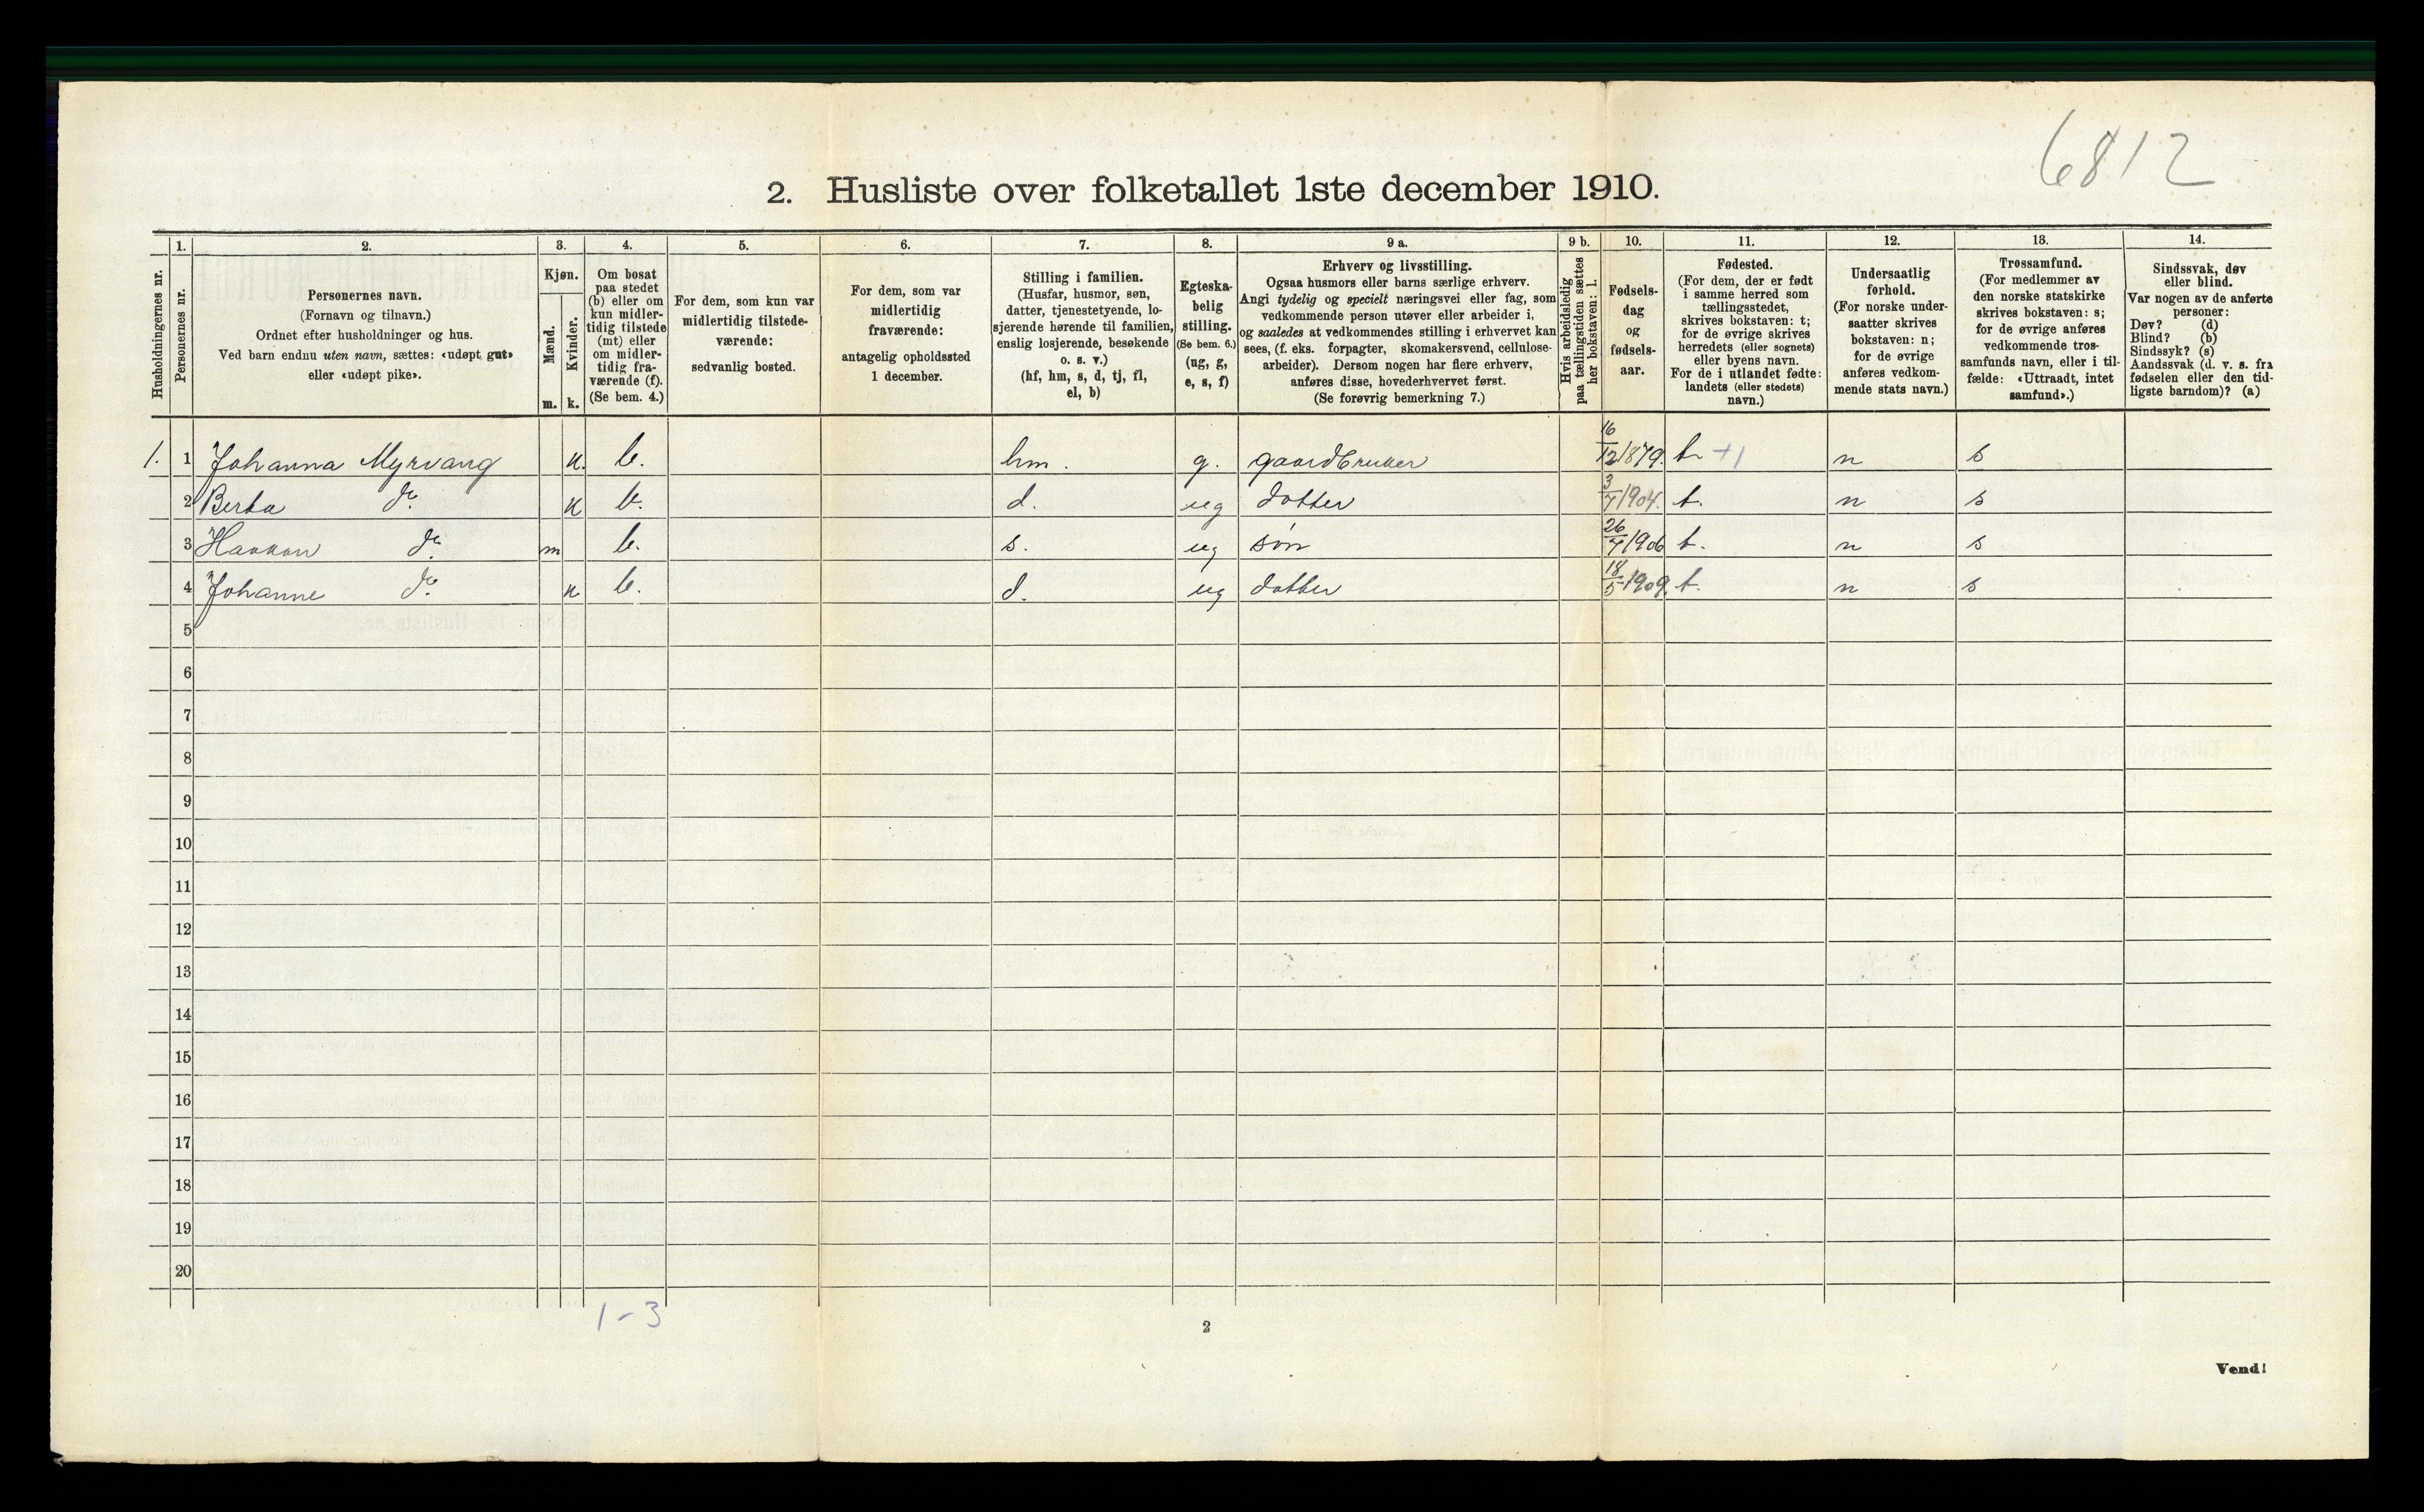 6812
2. Husliste over folketallet 1ste december 1910.
Husholdningernes nr.
1.
Personernes nr.
2.
Personernes navn.
(Fornavn og tilnavn.)
Ordnet efter husholdninger og hus.
Ved barn endnu uten navn, sættes: «udøpt gut»
eller «udøpt pike».
3.
Kjøn.
Mænd.
m.
Kvinder.
k.
4.
Om bosat
paa stedet
(b) eller om
kun midler-
tidig tilstede
(mt) eller
om midler-
tidig fra-
værende (f).
(Se bem. 4.)
5.
For dem, som kun var
midlertidig tilstede-
værende:
sedvanlig bosted.
6.
For dem, som var
midlertidig
fraværende:
antagelig opholdssted
1 december.
7.
Stilling i familien.
(Husfar, husmor, søn,
datter, tjenestetyende, lo-
sjerende hørende til familien,
enslig losjerende, besøkende
o. s. v.)
(hf, hm, s, d, tj, fl,
el, b)
8.
Egteska-
belig
stilling.
(Se bem. 6.)
(ug, g,
e, s, f)
9 a.
Erhverv og livsstilling.
Ogsaa husmors eller barns særlige erhverv.
Angi tydelig og specielt næringsvei eller fag, som
vedkommende person utøver eller arbeider i,
og saaledes at vedkommendes stilling i erhvervet kan
sees, (f. eks. forpagter, skomakersvend, cellulose-
arbeider). Dersom nogen har flere erhverv,
anføres disse, hovederhvervet først.
(Se forøvrig bemerkning 7.)
9 b.
Hvis arbeidsledig
paa tællingstiden sættes
her bokstaven: l.
10.
Fødsels-
dag
og
fødsels-
aar.
11.
Fødested.
(For dem, der er født
i samme herred som
tællingsstedet,
skrives bokstaven: t;
for de øvrige skrives
herredets (eller sognets)
eller byens navn.
For de i utlandet fødte:
landets (eller stedets)
navn.)
12.
Undersaatlig
forhold.
(For norske under-
saatter skrives
bokstaven: n;
for de øvrige
anføres vedkom-
mende stats navn.)
13.
Trossamfund.
(For medlemmer av
den norske statskirke
skrives bokstaven: s;
for de øvrige anføres
vedkommende tros-
samfunds navn, eller i til-
fælde: «Uttraadt, intet
samfund».)
14.
Sindssvak, døv
eller blind.
Var nogen av de anførte
personer:
Døv? (d)
Blind? (b)
Sindssyk? (s)
Aandssvak (d. v. s. fra
fødselen eller den tid-
ligste barndom)? (a)
1. 1 Johanna Myrvang k. b. hm. g. gaardbruker 16/12 1879. t. +1 n s
2 Berta do k b. d. ug datter 3/7 1904. t. n s
3 Haakon do m b. s. ug søn 26/7 1906 t. n s
4 Johanne do k b. d. ug datter 18/5 1909. t. n s
5
6
7
8
9
10
11
12
13
14
15
16
17
18
19
20
1-3
2
Vend!